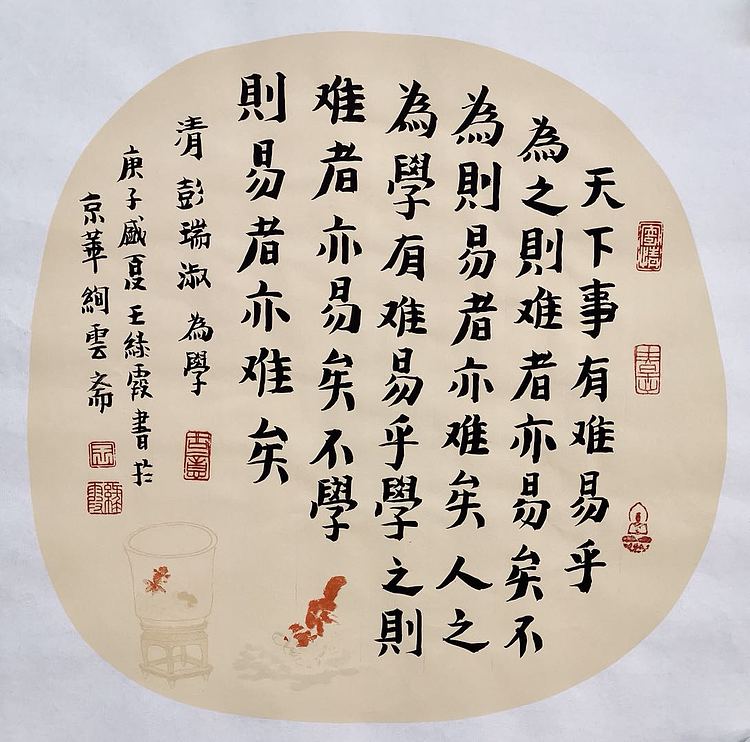 天下事有难易乎
為之則难者亦易矣不
為則易者亦难矣人之
為學有难易乎學之則
难者亦易矣不學
則易者亦难矣
清彭瑞淑為學
庚子盛夏王霞書扵
京華絢雲斋